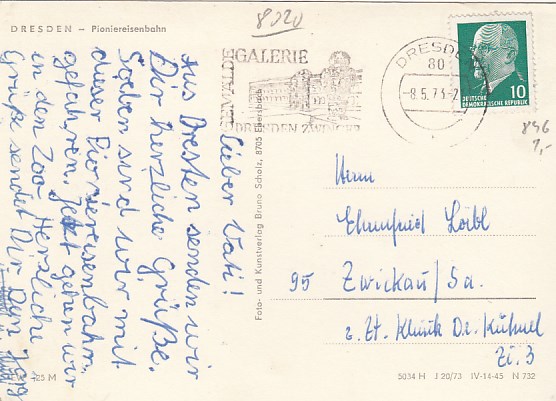 8020
DRESDEN – Pioniereisenbahn
Lieber Vati!
Aus Dresden senden wir
Dir herzliche Grüße.
Soeben sind wir mit
dieser Pioniereisenbahn
gefahren. Jetzt gehen wir
in den Zoo. Herzliche
Grüße sendet Dir Dein Jörg
GEMÄLDE
GALERIE
DRESDEN ZWINGER
DRESDEN
80
-8.5.74-
DEUTSCHE
DEMOKRATISCHE REPUBLIK
10
846
1,-
Herrn
Ehrenfried Loibl
95 Zwickau/Sa.
z. Zt. Klinik Dr. Kühnel
Zi. 3
Foto- und Kunstverlag Bruno Scholz, 8705 Ebersbach
25 M
5034 H J 20/73 IV-14-45 N 732